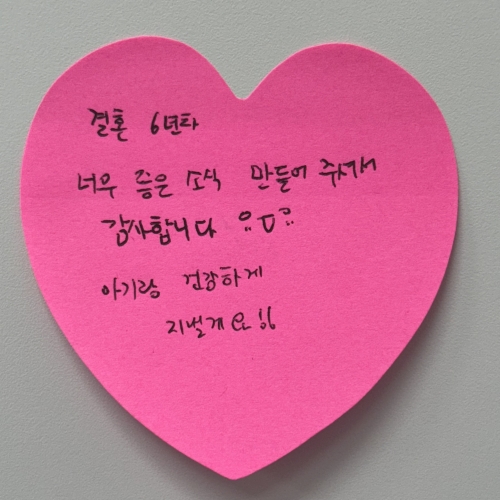 결혼 6년차
너무 좋은 소식 만들어 주셔서
감사합니다 ㅠㅠ
아기랑 건강하게
지낼게요!!